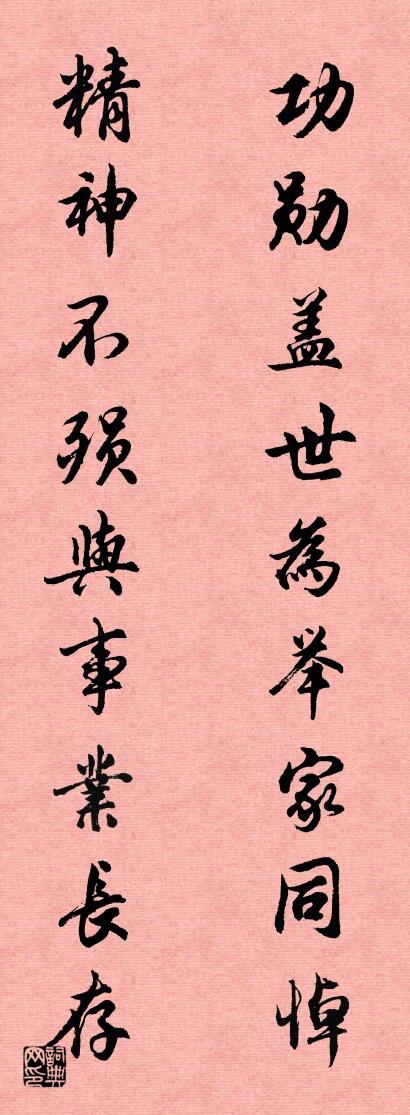 功勋盖世為举家同悼
精神不殒與事業長存
詞典網印